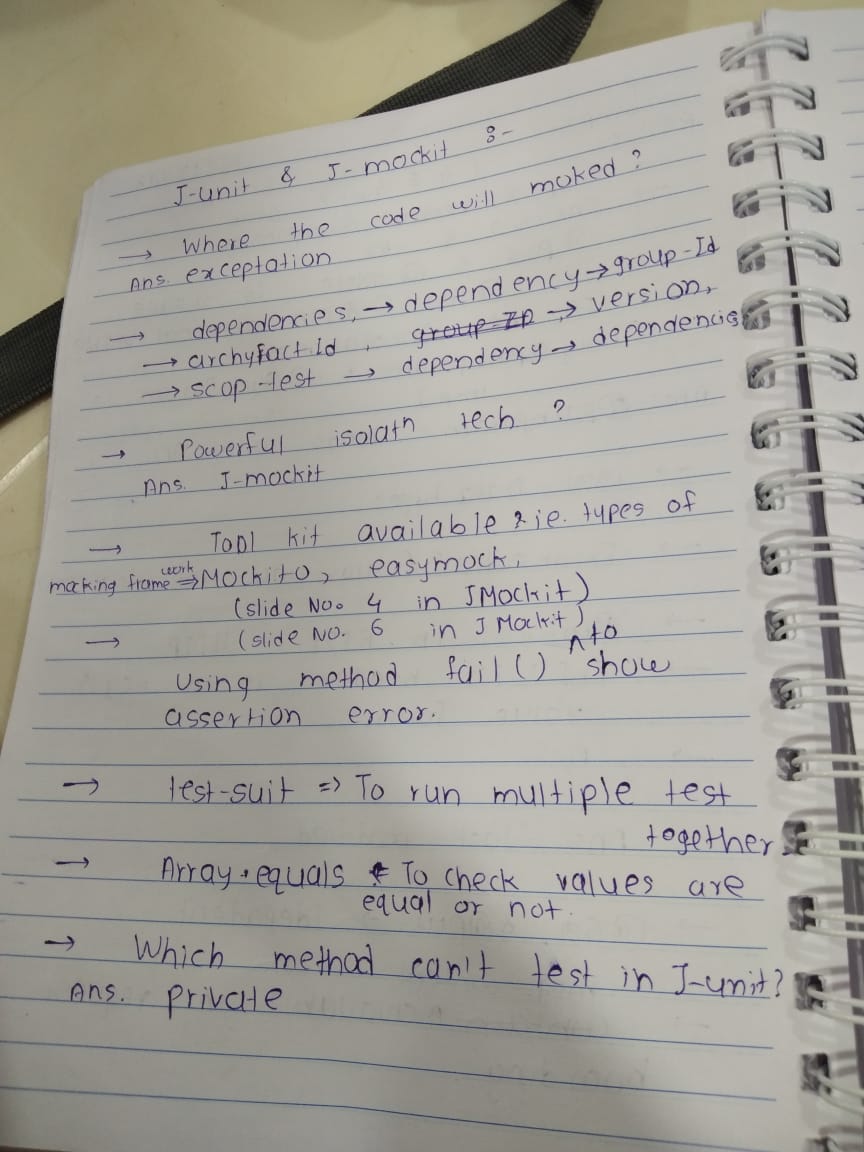 J-unit & J-mockit :-
→ Where the code will moked ?
Ans. exceptation
→ dependencies, → dependency → group-Id
→ archyfact Id , group ID → version,
→ scop-test → dependency → dependencis
→ Powerful isolath tech ?
Ans. J-mockit
→ Tool kit available & ie. types of
macking frame work ⇒ Mockito, easymock,
(slide No. 4 in JMockit)
→ (slide NO. 6 in J Mockit)
Using method fail() ^ to show
assertion error.
→ test-suit => To run multiple test
together.
→ Array.equals To check values are
equal or not.
→ Which method can't test in J-unit?
Ans. private